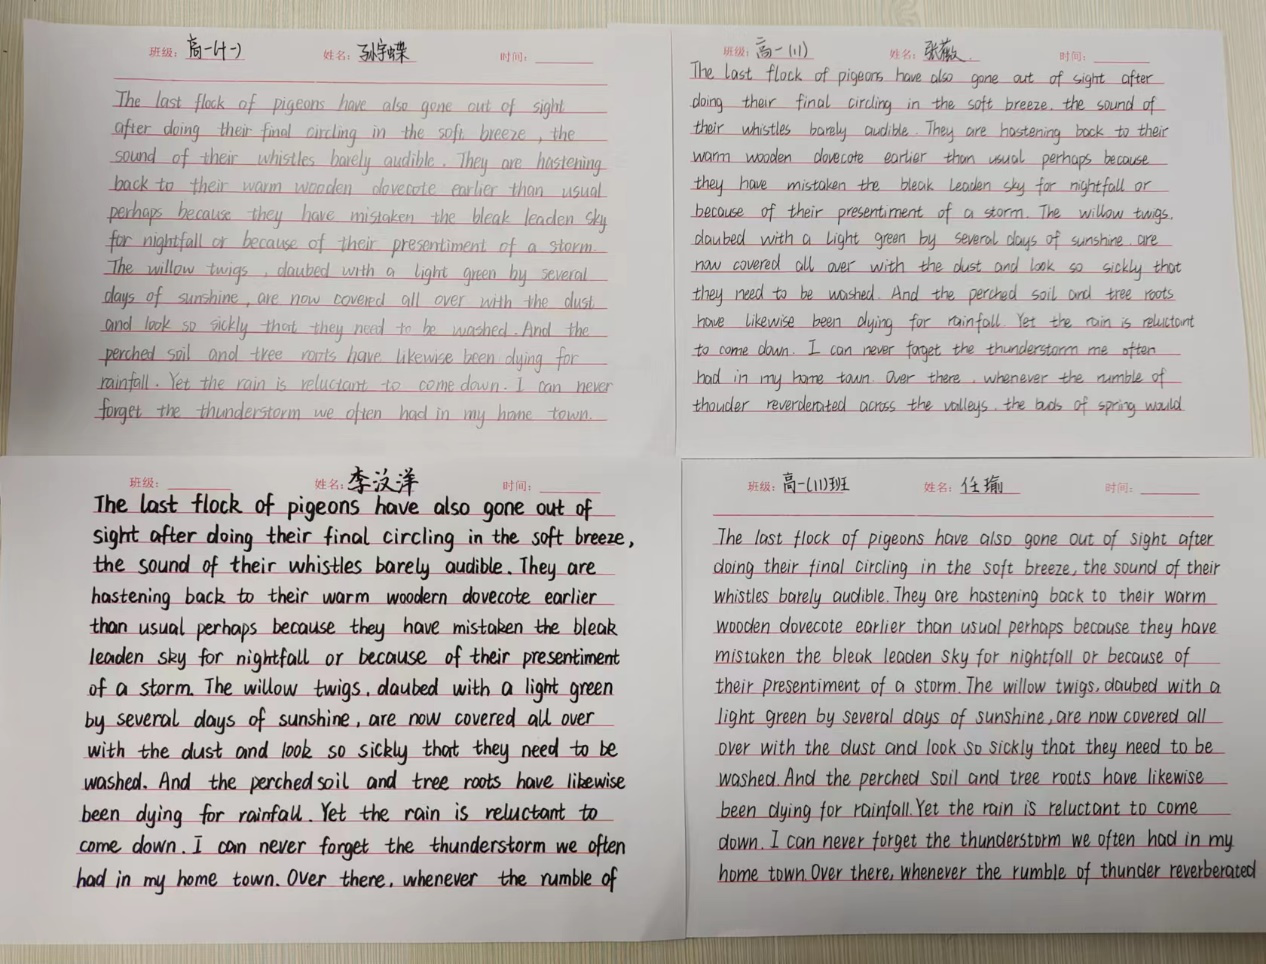 班级: 高一(十一) 姓名: 孙宇蝶 时间:
The last flock of pigeons have also gone out of sight
after doing their final circling in the soft breeze , the
sound of their whistles barely audible . They are hastening
back to their warm wooden dovecote earlier than usual
perhaps because they have mistaken the bleak leaden sky
for nightfall or because of their presentiment of a storm.
The willow twigs , daubed with a light green by several
days of sunshine , are now covered all over with the dust
and look so sickly that they need to be washed . And the
perched soil and tree roots have likewise been dying for
rainfall . Yet the rain is reluctant to come down . I can never
forget the thunderstorm we often had in my home town.
班级: 高一(11) 姓名: 张薇 时间:
The last flock of pigeons have also gone out of sight after
doing their final circling in the soft breeze. the sound of
their whistles barely audible. They are hastening back to their
warm wooden dovecote earlier than usual perhaps because
they have mistaken the bleak leaden sky for nightfall or
because of their presentiment of a storm. The willow twigs.
daubed with a light green by several days of sunshine. are
now covered all over with the dust and look so sickly that
they need to be washed. And the perched soil and tree roots
have likewise been dying for rainfall. Yet the rain is reluctant
to come down. I can never forget the thunderstorm me often
had in my home town. Over there , whenever the rumble of
thouder reverderated across the valleys. the buds of spring would
班级: 姓名: 李汶洋 时间:
The last flock of pigeons have also gone out of
sight after doing their final circling in the soft breeze,
the sound of their whistles barely audible. They are
hastening back to their warm woodern dovecote earlier
than usual perhaps because they have mistaken the bleak
leaden sky for nightfall or because of their presentiment
of a storm. The willow twigs, daubed with a light green
by several days of sunshine, are now covered all over
with the dust and look so sickly that they need to be
washed. And the perched soil and tree roots have likewise
been dying for rainfall. Yet the rain is reluctant to
come down. I can never forget the thunderstorm we often
had in my home town. Over there, whenever the rumble of
班级: 高一(11)班 姓名: 任瑜 时间:
The last flock of pigeons have also gone out of sight after
doing their final circling in the soft breeze, the sound of their
whistles barely audible. They are hastening back to their warm
wooden dovecote earlier than usual perhaps because they have
mistaken the bleak leaden sky for nightfall or because of
their presentiment of a storm. The willow twigs, daubed with a
light green by several days of sunshine, are now covered all
over with the dust and look so sickly that they need to be
washed. And the perched soil and tree roots have likewise
been dying for rainfall. Yet the rain is reluctant to come
down. I can never forget the thunderstorm we often had in my
home town. Over there, whenever the rumble of thunder reverberated